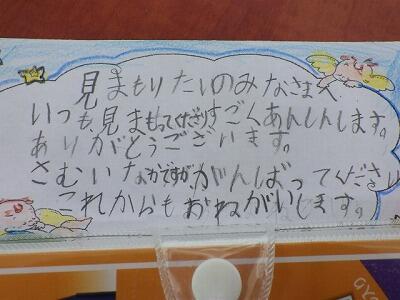 見まもりたいのみなさまへ
いつも見まもってくださりすごくあんしんします。
ありがとうございます。
さむいなかですががんばってください
これからもおねがいします。